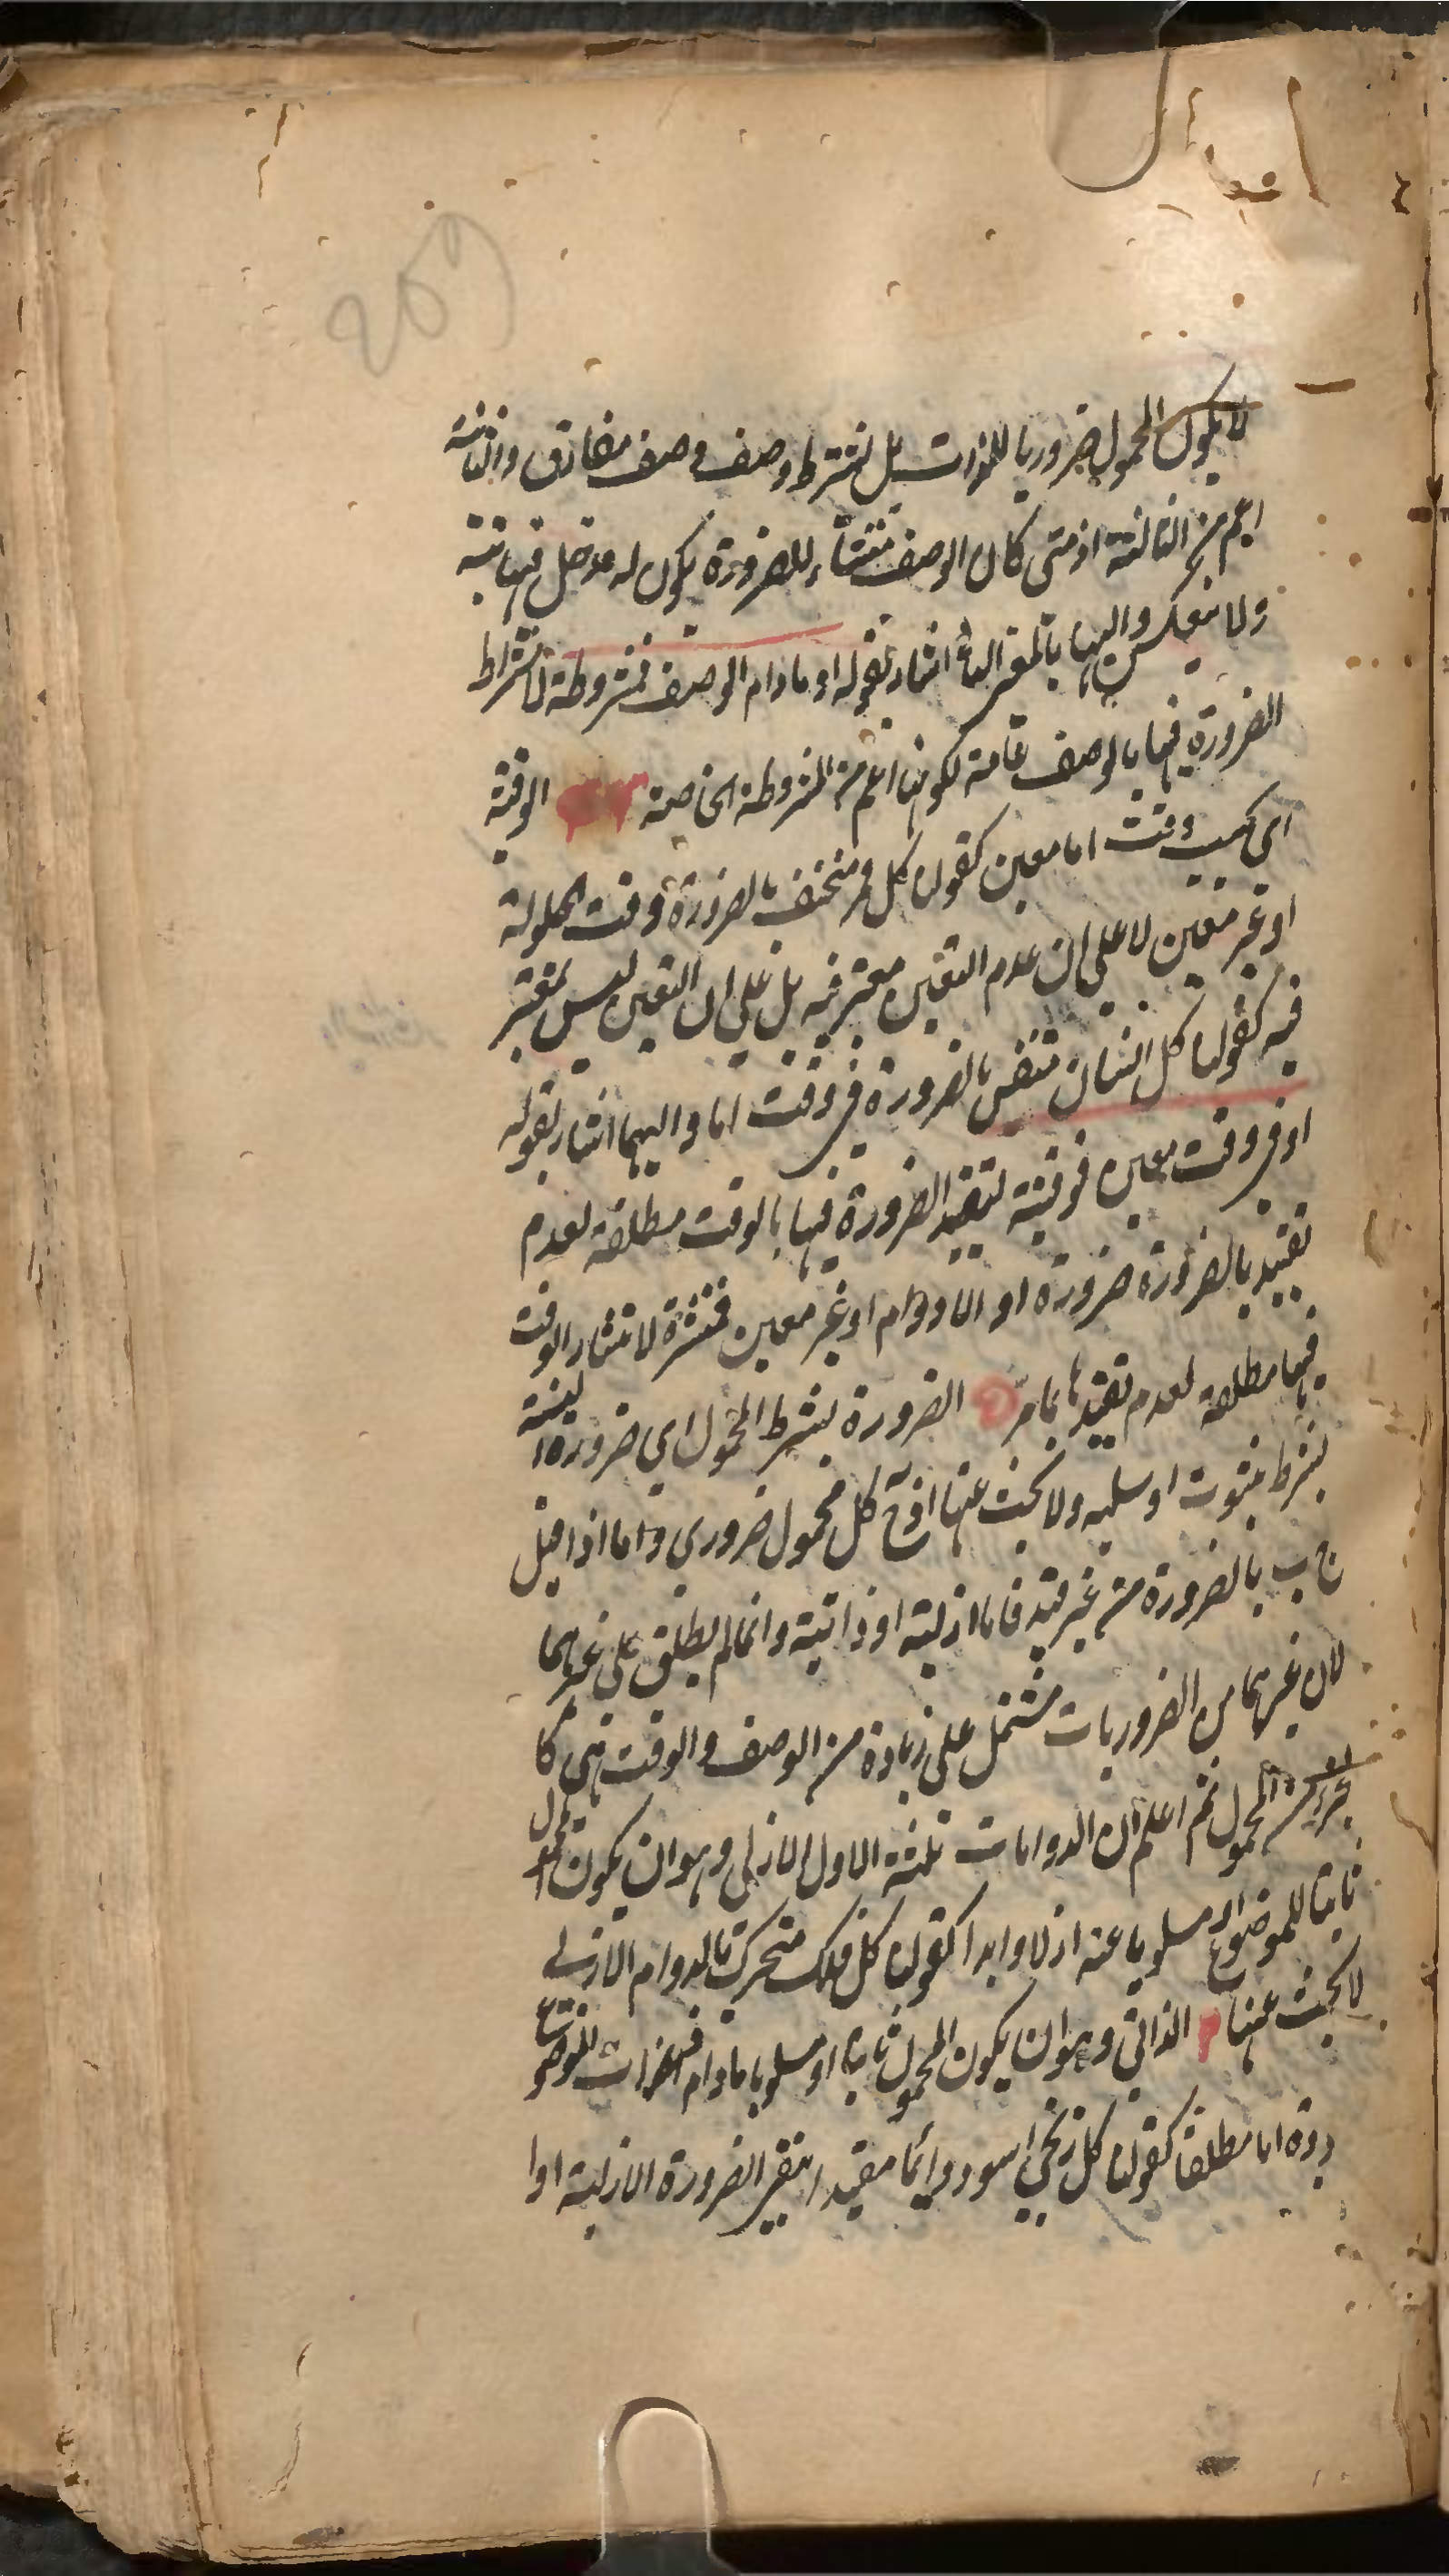 259
لا يكون المحمول ضروريا للذات بل بشرط وصف وصف مفارق والثانية
اعم من الثالثة اذ متى كان الوصف منشأ للضرورة يكون له مدخل فيها
ولا ينعكس واليها بالمعنى اشار بقوله او مادام الوصف فمشروطة لاشتراط
الضرورة فيها بالوصف عامة لكونها اعم من المشروطة الخاصة الوقتية
اي بحسب وقت اما معين كقولنا كل قمر منخسف بالضرورة وقت الحيلولة
او غير معين لا على ان عدم التعين معتبر فيه بل على ان التعين ليس بمعتبر
فيه كقولنا كل انسان متنفس بالضرورة في وقت اما واليهما اشار بقوله
او في وقت معين فوقتية لتقييد الضرورة فيها بالوقت مطلقة لعدم
تقييد بالضرورة ضرورة او اللادوام او غير معين فمنتشرة لانتشار الوقت
فيها مطلقة لعدم تقييدها بما مر الضرورة بشرط المحمول اي ضرورة
بشرط ثبوت او سلبه ولا بحث عنها اذ ح كل محمول ضروري واما اذا قيل
ج ب بالضرورة من غير قيد فاما ازلية او ذاتية وانما لم يطلق على غيرهما
لان غيرهما من الضروريات مشتمل على زيادة من الوصف والوقت فهي كا
لجزء من المحمول ثم اعلم ان الدوامات ثلثة الاول الازلي وهو ان يكون المحمول
ثابتا للموضوع او مسلوبا عنه ازلا وابدا كقولنا كل فلك متحرك بالدوام الازلي
لا بحث عنها الذاتي وهو ان يكون المحمول ثابتا او مسلوبا مادام ذات الموضوع
اما مطلقا كقولنا كل زنجي اسود دائما مقيدا بنفي الضرورة الازلية او